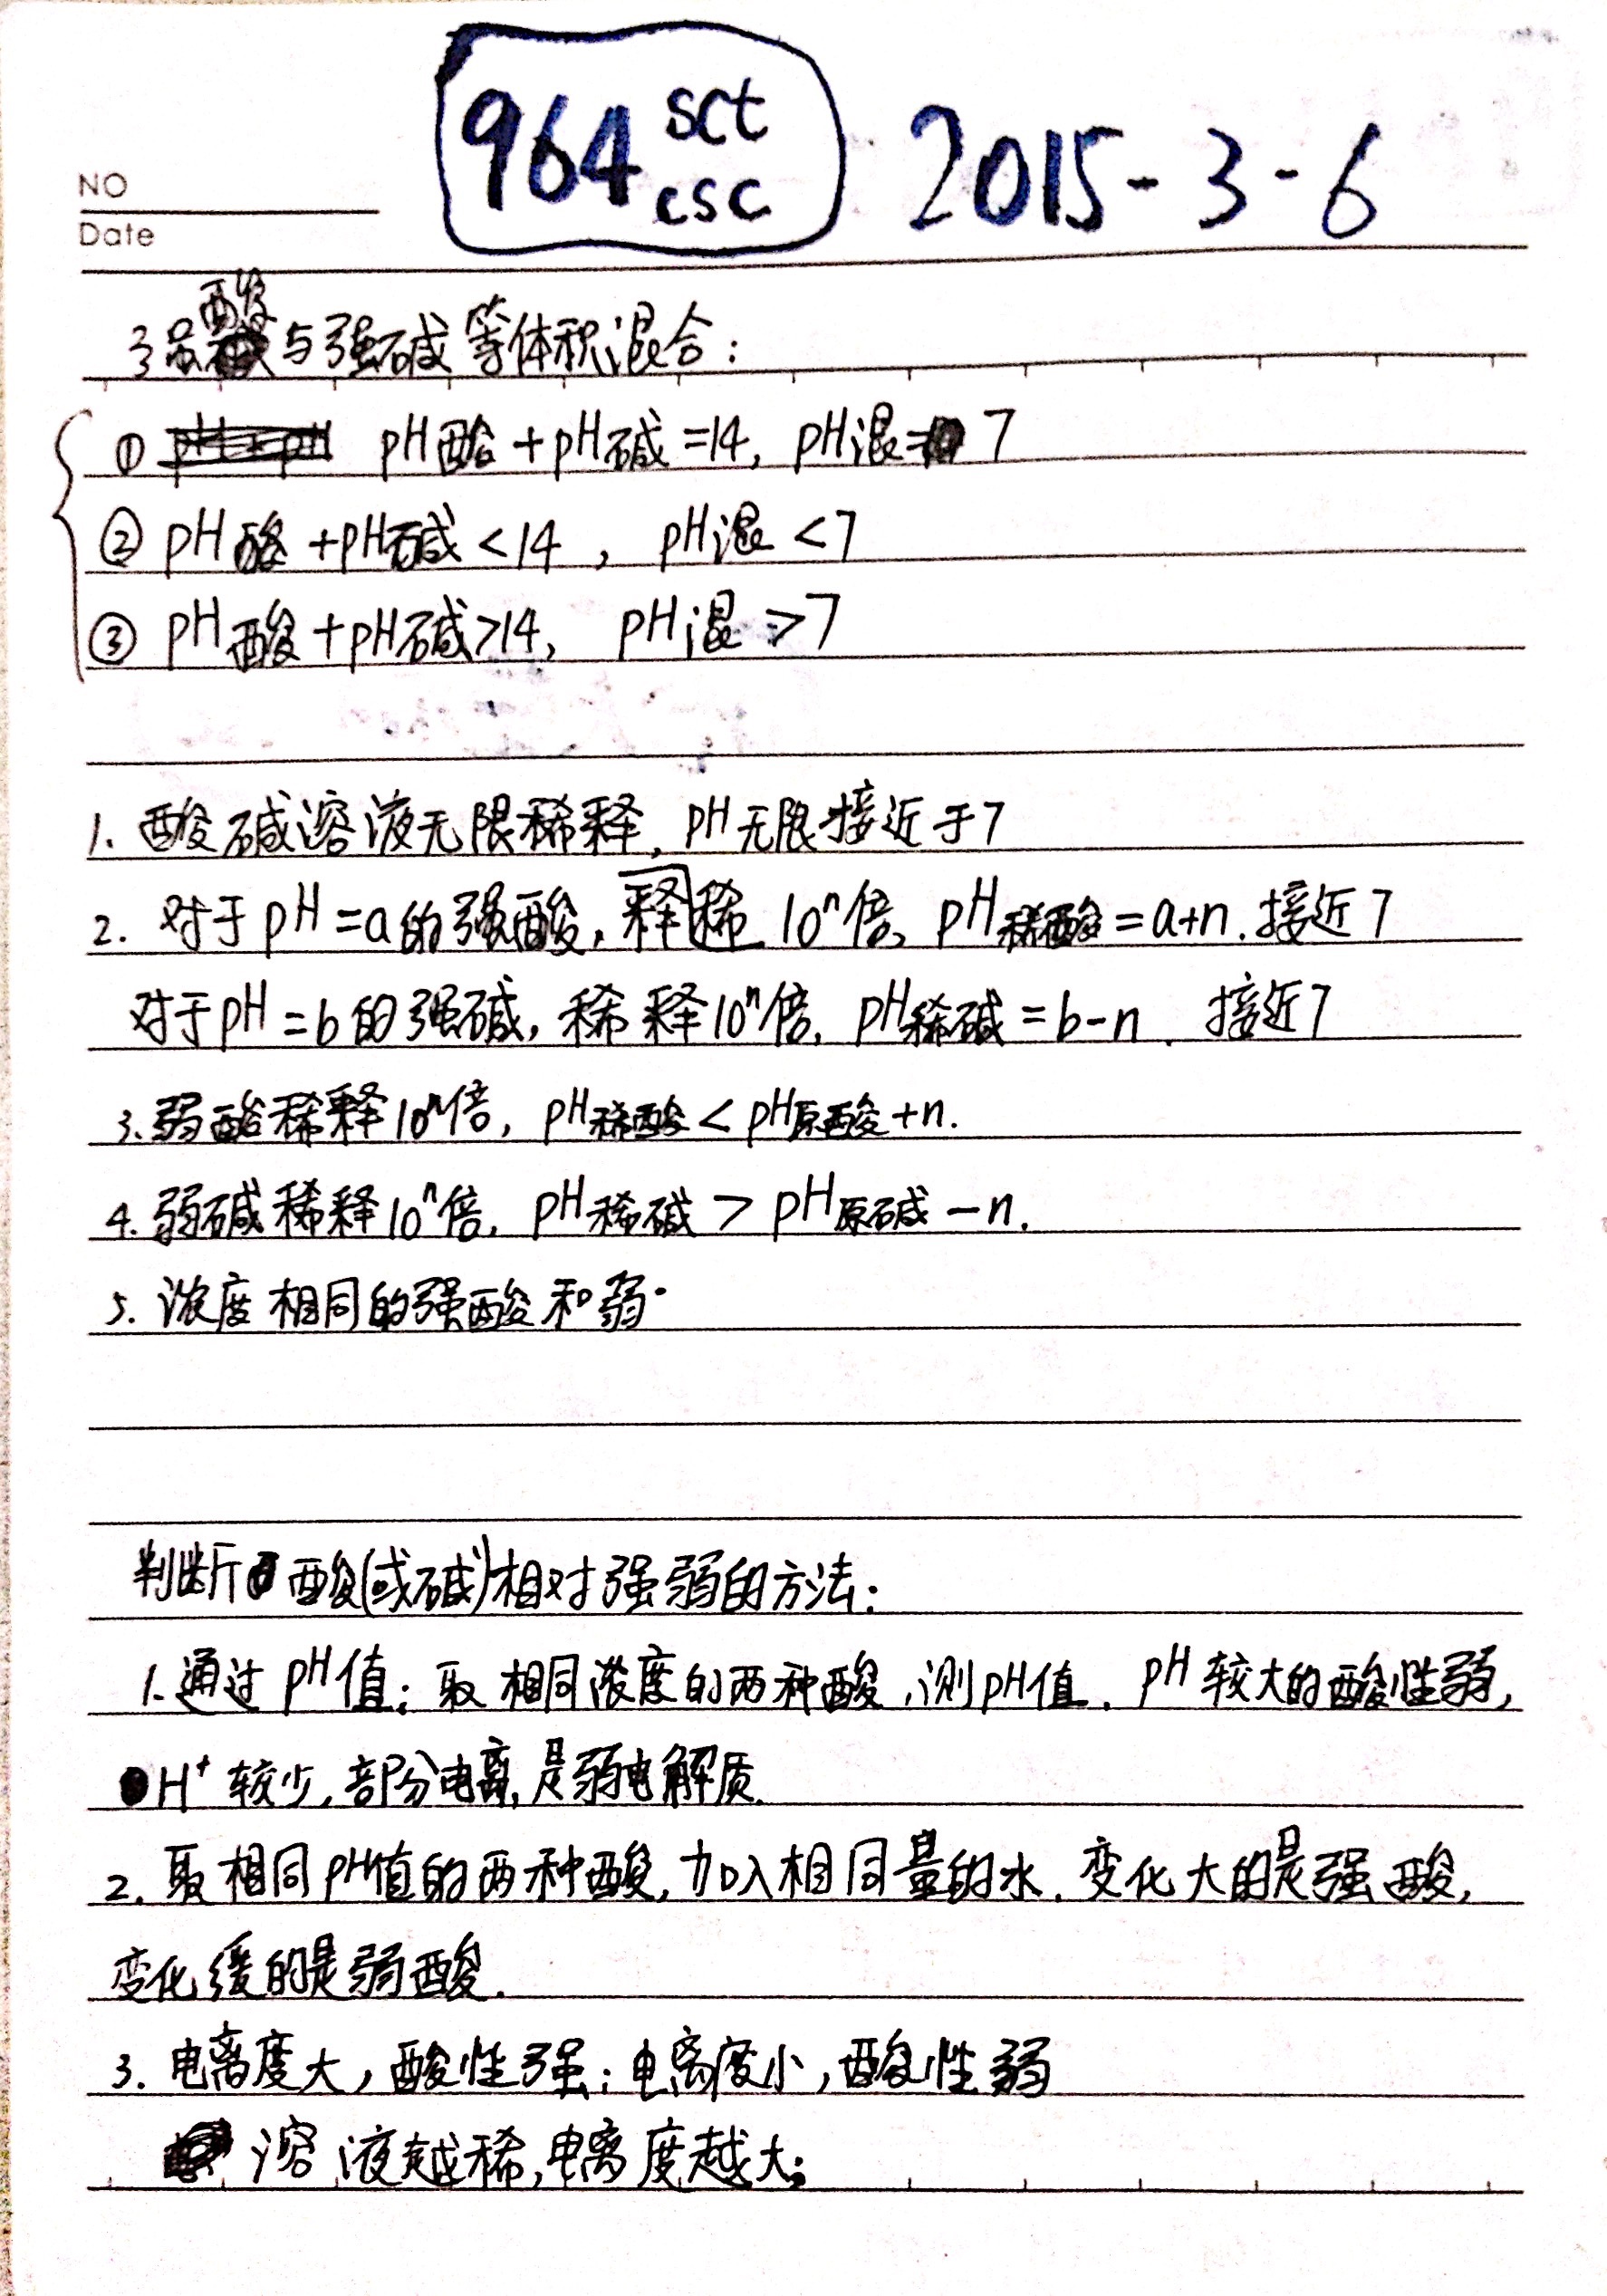 964 sct
csc
2015-3-6
NO
Date
强酸与强碱等体积混合：
① pH酸+pH碱=14, pH混=7
② pH酸+pH碱<14, pH混<7
③ pH酸+pH碱>14, pH混>7
1. 酸碱溶液无限稀释, pH无限接近于7
2. 对于pH=a的强酸, 释稀10ⁿ倍, pH稀酸=a+n. 接近7
对于pH=b的强碱, 稀释10ⁿ倍, pH稀碱=b-n. 接近7
3. 弱酸稀释10ⁿ倍, pH稀酸<pH原酸+n.
4. 弱碱稀释10ⁿ倍, pH稀碱>pH原碱-n.
5. 浓度相同的强酸和弱
判断酸(或碱)相对强弱的方法：
1. 通过pH值：取相同浓度的两种酸,测pH值. pH较大的酸性弱,
H⁺较少, 部分电离, 是弱电解质.
2. 取相同pH值的两种酸, 加入相同量的水. 变化大的是强酸,
变化缓的是弱酸.
3. 电离度大, 酸性强；电离度小, 酸性弱
溶液越稀, 电离度越大；